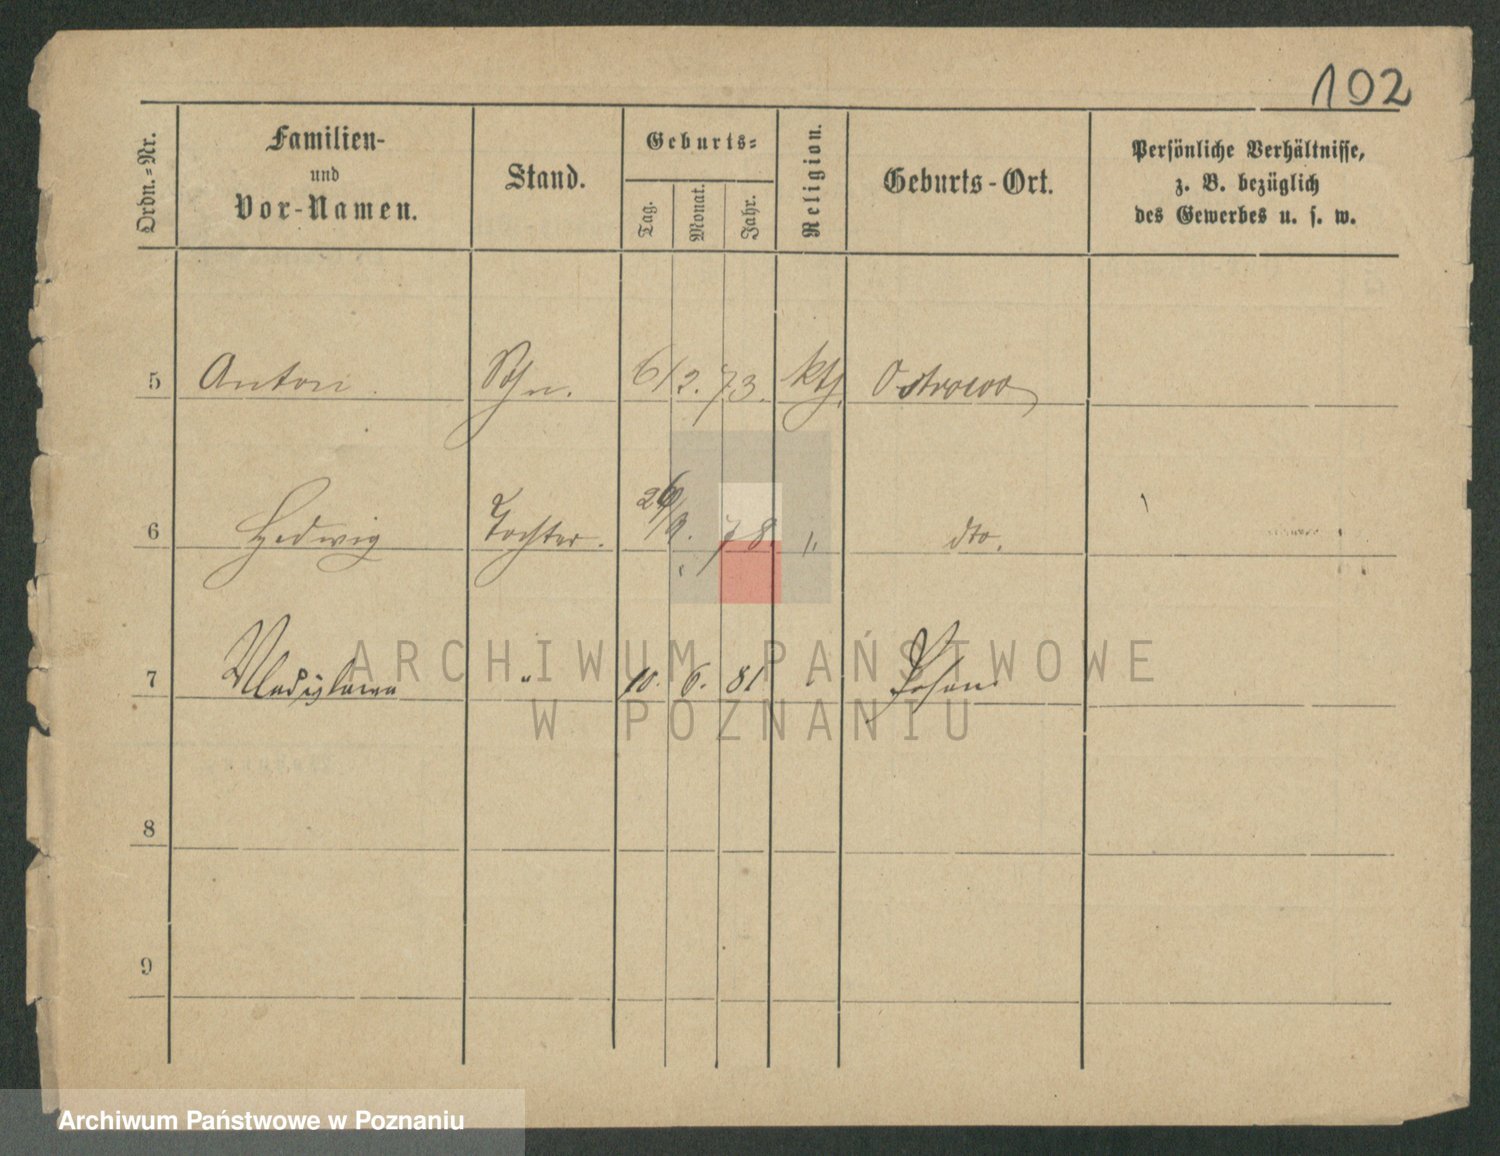 102
Ordn.-Nr.
Familien-
und
Vor-Namen.
Stand.
Geburts-
Tag.
Monat.
Jahr.
Religion.
Geburts-Ort.
Persönliche Verhältnisse,
z. B. bezüglich
des Gewerbes u. s. w.
5 Anton Sohn. 6/2. 73. kth. Ostrowo
6 Hedwig Tochter. 9. 78. " dto.
7 Wladislawa " 10. 6. 81 " Posen
8
9
ARCHIWUM PAŃSTWOWE
W POZNANIU
Archiwum Państwowe w Poznaniu